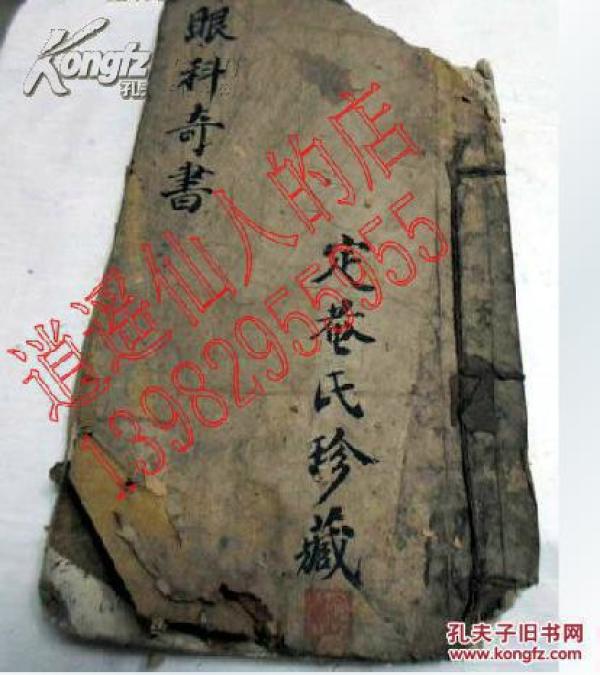 Kongfz
孔
眼科奇書
定敬氏珍藏
逍遥仙人的店
13982955955
孔夫子旧书网
www.kongfz.com